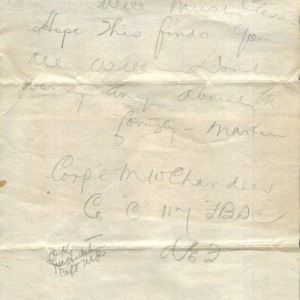 Well Must Close
Hope this finds you
all well. Dont
worry any about M
Lovingly - Martin
Corp'l M W Chandler
Co "C" 117 F.B.S.C
A.E.F
O.K.
Capt